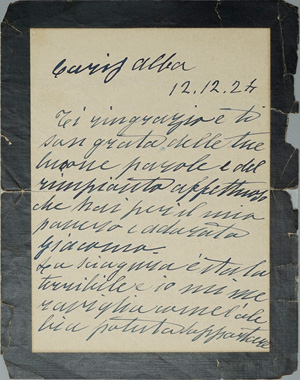 Caris Alba
12.12.24
Ti ringrazio e ti
son grata delle tue
buone parole e del
rimpianto affettuoso
che hai per il mio
povero e adorato
Giacomo.
La sciagura è stata
terribile e io mi me
raviglio come l'ab
bia potuta sopportare